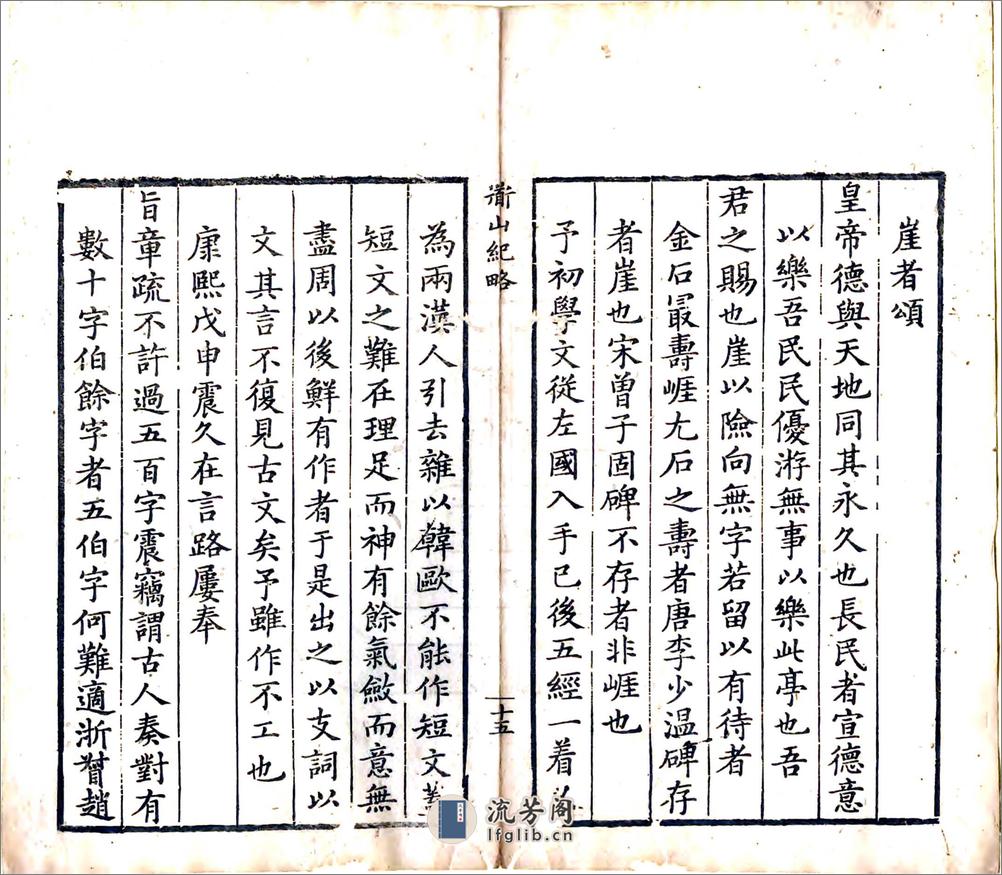 崖者頌
皇帝德與天地同其永久也長民者宣德意
以樂吾民民優游無事以樂此亭也吾
君之賜也崖以險向無字若留以有待者
金石㝡壽崕尢石之壽者唐李少温碑存
者崖也宋曾子固碑不存者非崕也
予初學文從左國入手已後五經一着
道山紀略
十五
為兩漢人引去雜以韓歐不能作短文蓋
短文之難在理足而神有餘氣斂而意無
盡周以後鮮有作者于是出之以支詞以
文其言不復見古文矣予雖作不工也
康熙戊申震久在言路屢奉
旨章疏不許過五百字震竊謂古人奏對有
數十字伯餘字者五伯字何難適浙督趙
流芳阁
lfglib.cn